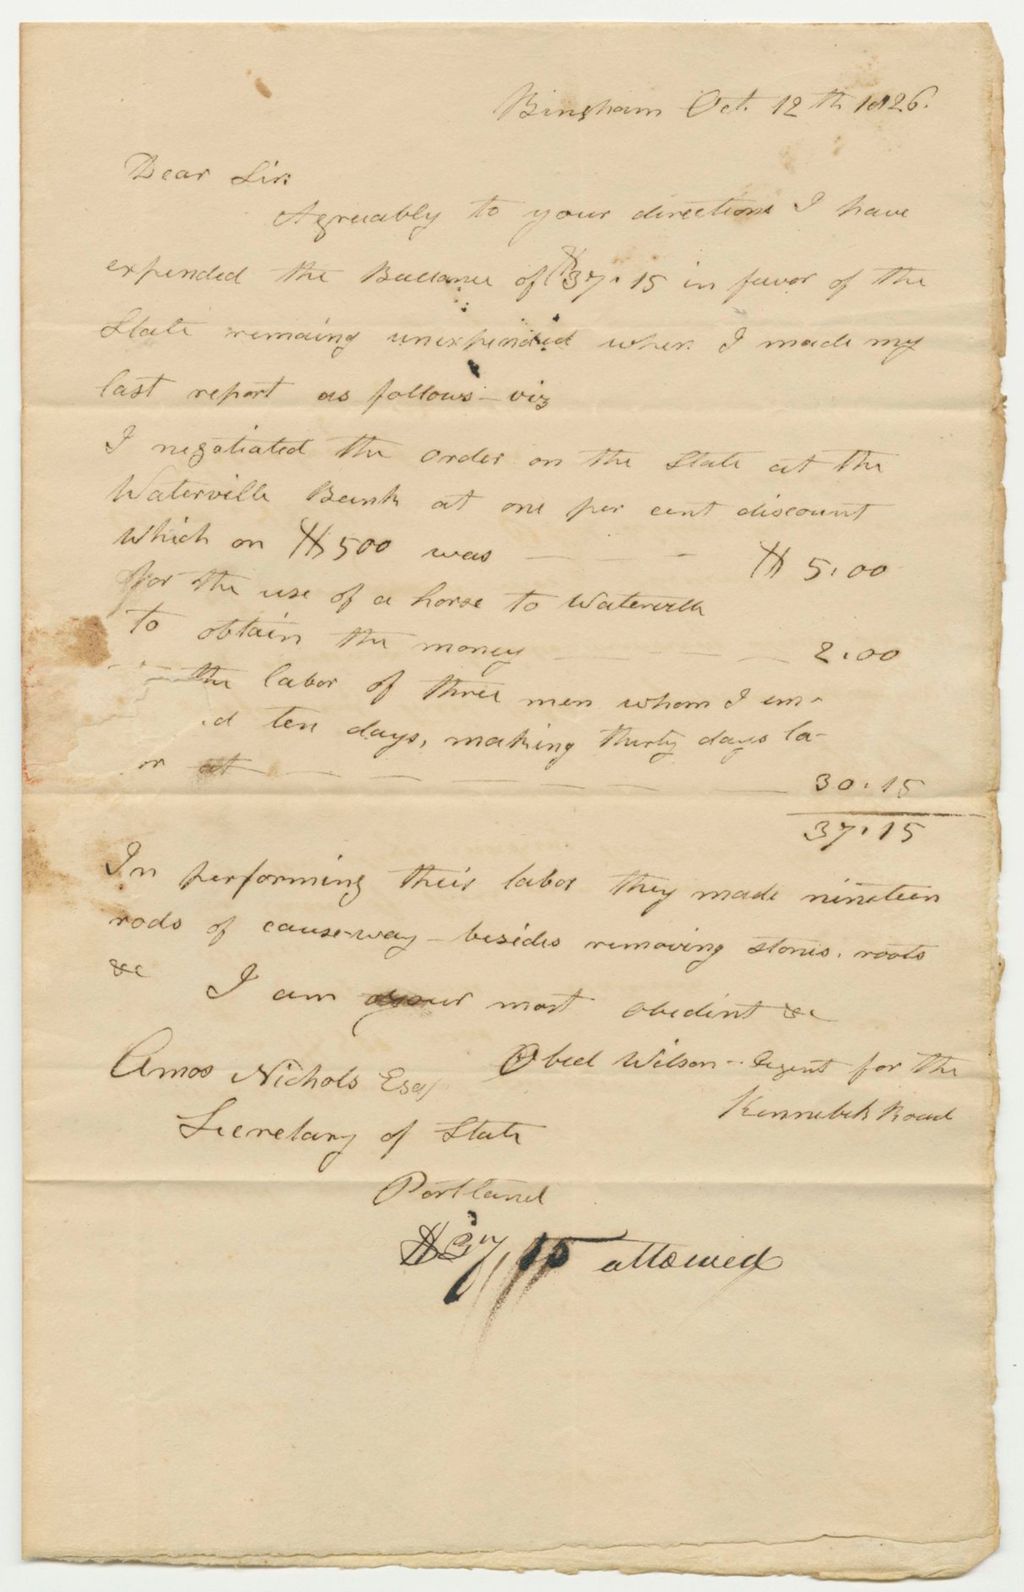 Bingham Oct. 12th 1826.
Dear Sir:
Agreuably to your directions I have
expended the Ballance of $37.15 in favor of the
State remaing unexpended when I made my
last report as follows - viz
I negotiated the order on the State at the
Waterville Bank at one per cent discount
Which on $500 was - - $5.00
for the use of a horse to Waterville
to obtain the money - - - 2.00
the labor of three men whom I em-
d ten days, making thirty days la-
or at - - - - - - 30.15
37.15
In performing their labor they made nineteen
rods of cause-way - besides removing stones, roots
&c I am your most obedient &c
Obed Wilson - Agent for the
Kennebek Road
Amos Nichols Esq
Secretary of State
Portland
$37,15 allowed